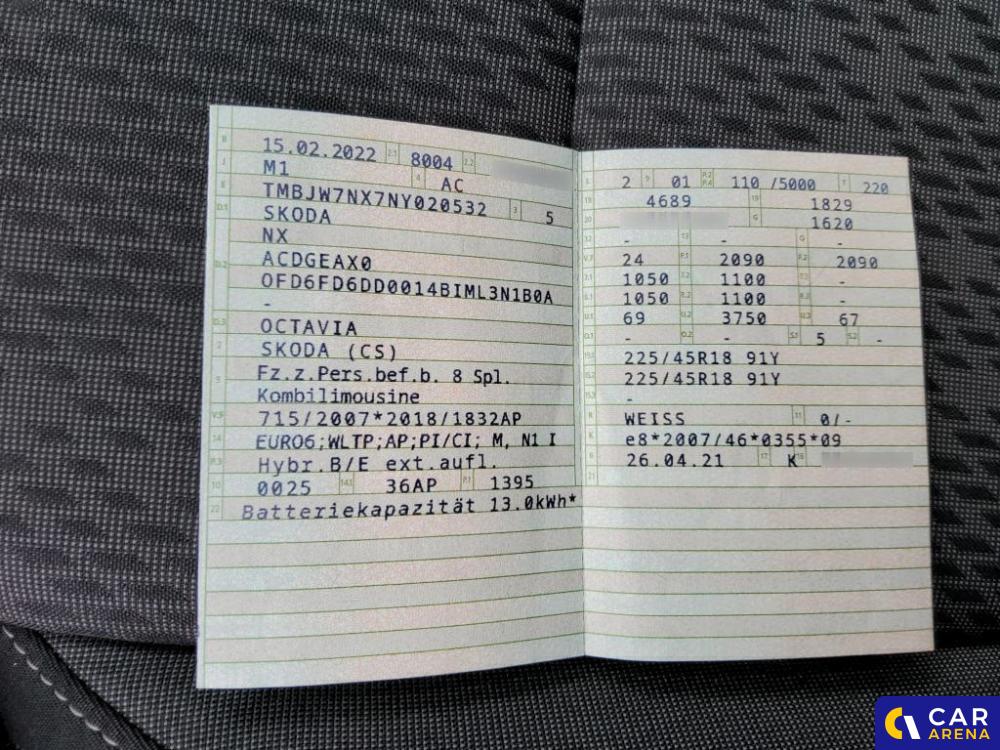 B 15.02.2022 2.1 8004 2.2
J M1 4 AC
E TMBJW7NX7NY020532 3 5
D.1 SKODA
NX
D.2 ACDGEAX0
OFD6FD6DD0014BIML3N1B0A
-
D.3 OCTAVIA
2 SKODA (CS)
5 Fz.z.Pers.bef.b. 8 Spl.
Kombilimousine
V.9 715/2007*2018/1832AP
14 EURO6;WLTP;AP;PI/CI; M, N1 I
P.3 Hybr.B/E ext.aufl.
10 0025 14.1 36AP P.1 1395
22 Batteriekapazität 13.0kWh*
L 2 9 01 P.2 P.4 110 /5000 T 220
18 4689 19 1829
20 G 1620
12 - 13 - Q -
V.7 24 F.1 2090 F.2 2090
7.1 1050 7.2 1100 7.3 -
8.1 1050 8.2 1100 8.3 -
U.1 69 U.2 3750 U.3 67
O.1 - O.2 - S.1 5 S.2 -
15.1 225/45R18 91Y
15.2 225/45R18 91Y
15.3 -
R WEISS 11 0/-
K e8*2007/46*0355*09
6 26.04.21 17 K 16
21
CAR
ARENA